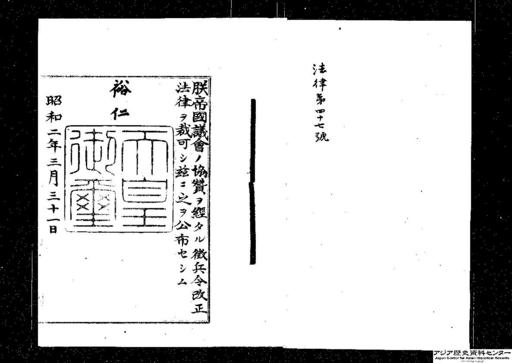 法律第四十七號
朕帝國議會ノ協贊ヲ經タル徴兵令改正
法律ヲ裁可シ茲ニ之ヲ公布セシム
裕仁
天皇
御璽
昭和二年三月三十一日
アジア歴史資料センター
Japan Center for Asian Historical Records